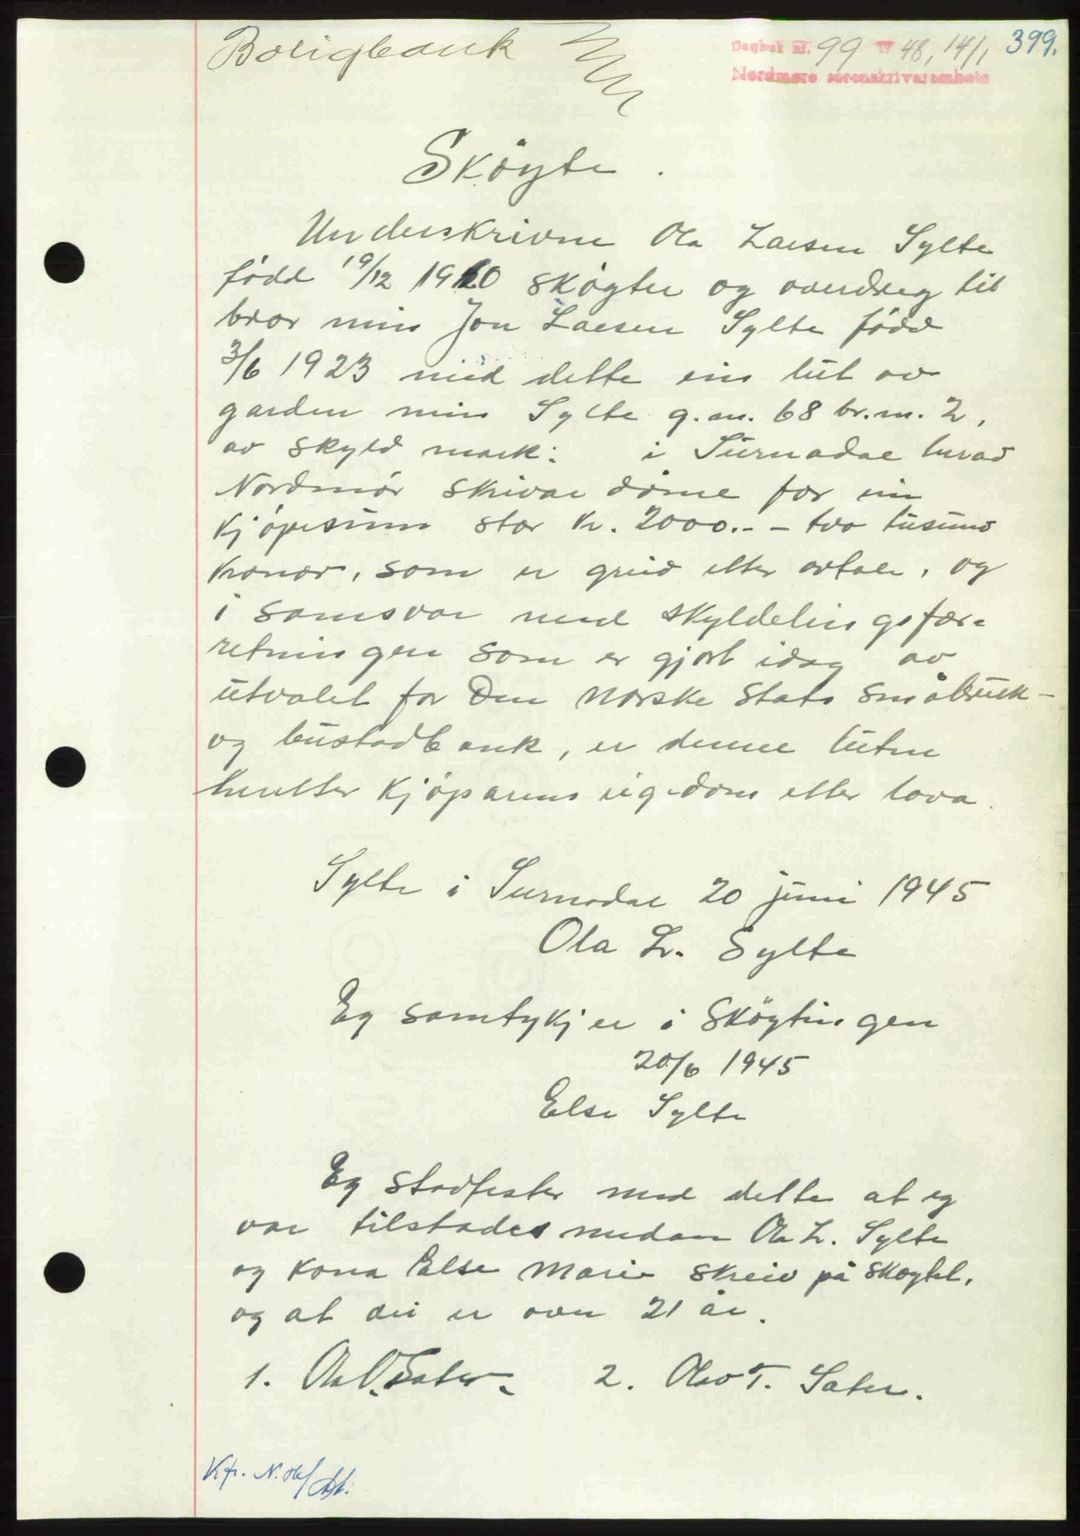 Boligbank
Dagbok nr. 99 19 48, 14/1 399.
Nordmøre sorenskrivarembete
Skøyte.
Underskrivne Ola Larsen Sylte
fødd 19/12 1910 skøyter og overdreg til
bror min Jon Larsen Sylte fødd
3/6 1923 med dette ein lut av
garden min Sylte g.nr. 68 br.nr. 2,
av skyld mark: i Surnadal herad
Nordmør skrivardøme for ein
kjøpesum stor kr. 2000.- - tvo tusund
kronor, som er greid etter avtale, og
i samsvar med skyldelingsfor-
retningen som er gjort idag av
utvalet for Den Norske Stats Småbruk-
og bustadbank, er denne luten
heretter kjøparens eigedom etter lova.
Sylte i Surnadal 20 juni 1945
Ola L. Sylte
Eg samtykjer i Skøytingen
20/6 1945
Else Sylte
Eg stadfester med dette at eg
var tilstades medan Ola L. Sylte
og kona Else Marie skreiv på skøytet,
og at dei er over 21 år.
1. Ola O. Sæter. 2. Olav T. Sæter.
Kfr. N.